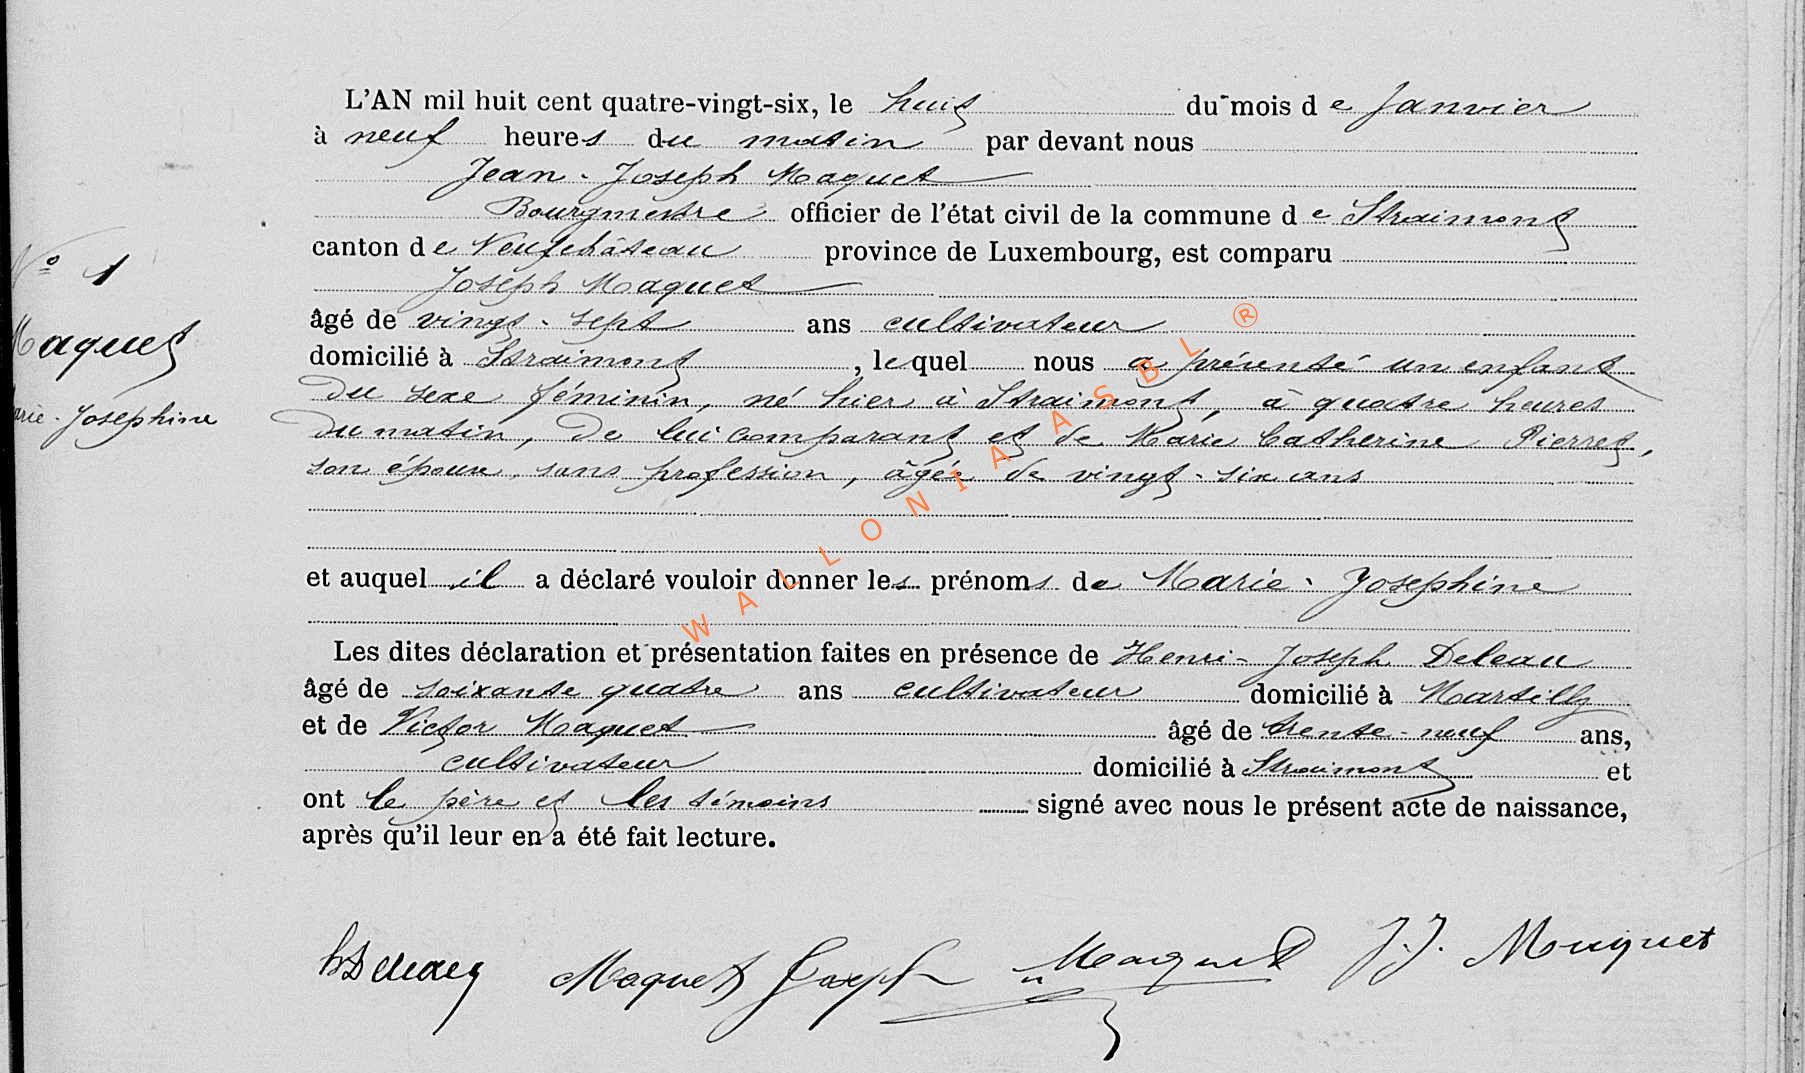 L'AN mil huit cent quatre-vingt-six, le huit du mois de Janvier
à neuf heures du matin par devant nous
Jean-Joseph Maquet
Bourgmestre officier de l'état civil de la commune de Straimont
canton de Neufchâteau province de Luxembourg, est comparu
Joseph Maquet
âgé de vingt-sept ans cultivateur
domicilié à Straimont, lequel nous a présenté un enfant
du sexe féminin, né hier à Straimont, à quatre heures
du matin, de lui comparant et de Marie Catherine Pierret,
son épouse, sans profession, âgée de vingt-six ans
et auquel il a déclaré vouloir donner les prénoms de Marie-Josephine
Les dites déclaration et présentation faites en présence de Henri-Joseph Deleau
âgé de soixante quatre ans cultivateur domicilié à Martilly
et de Victor Maquet âgé de trente-neuf ans,
cultivateur domicilié à Straimont et
ont le père et les témoins signé avec nous le présent acte de naissance,
après qu'il leur en a été fait lecture.
N° 1
Maquet
Marie-Josephine
Maquet Joseph
Maquet
J.J. Maquet
WALLONIA ASBL ®